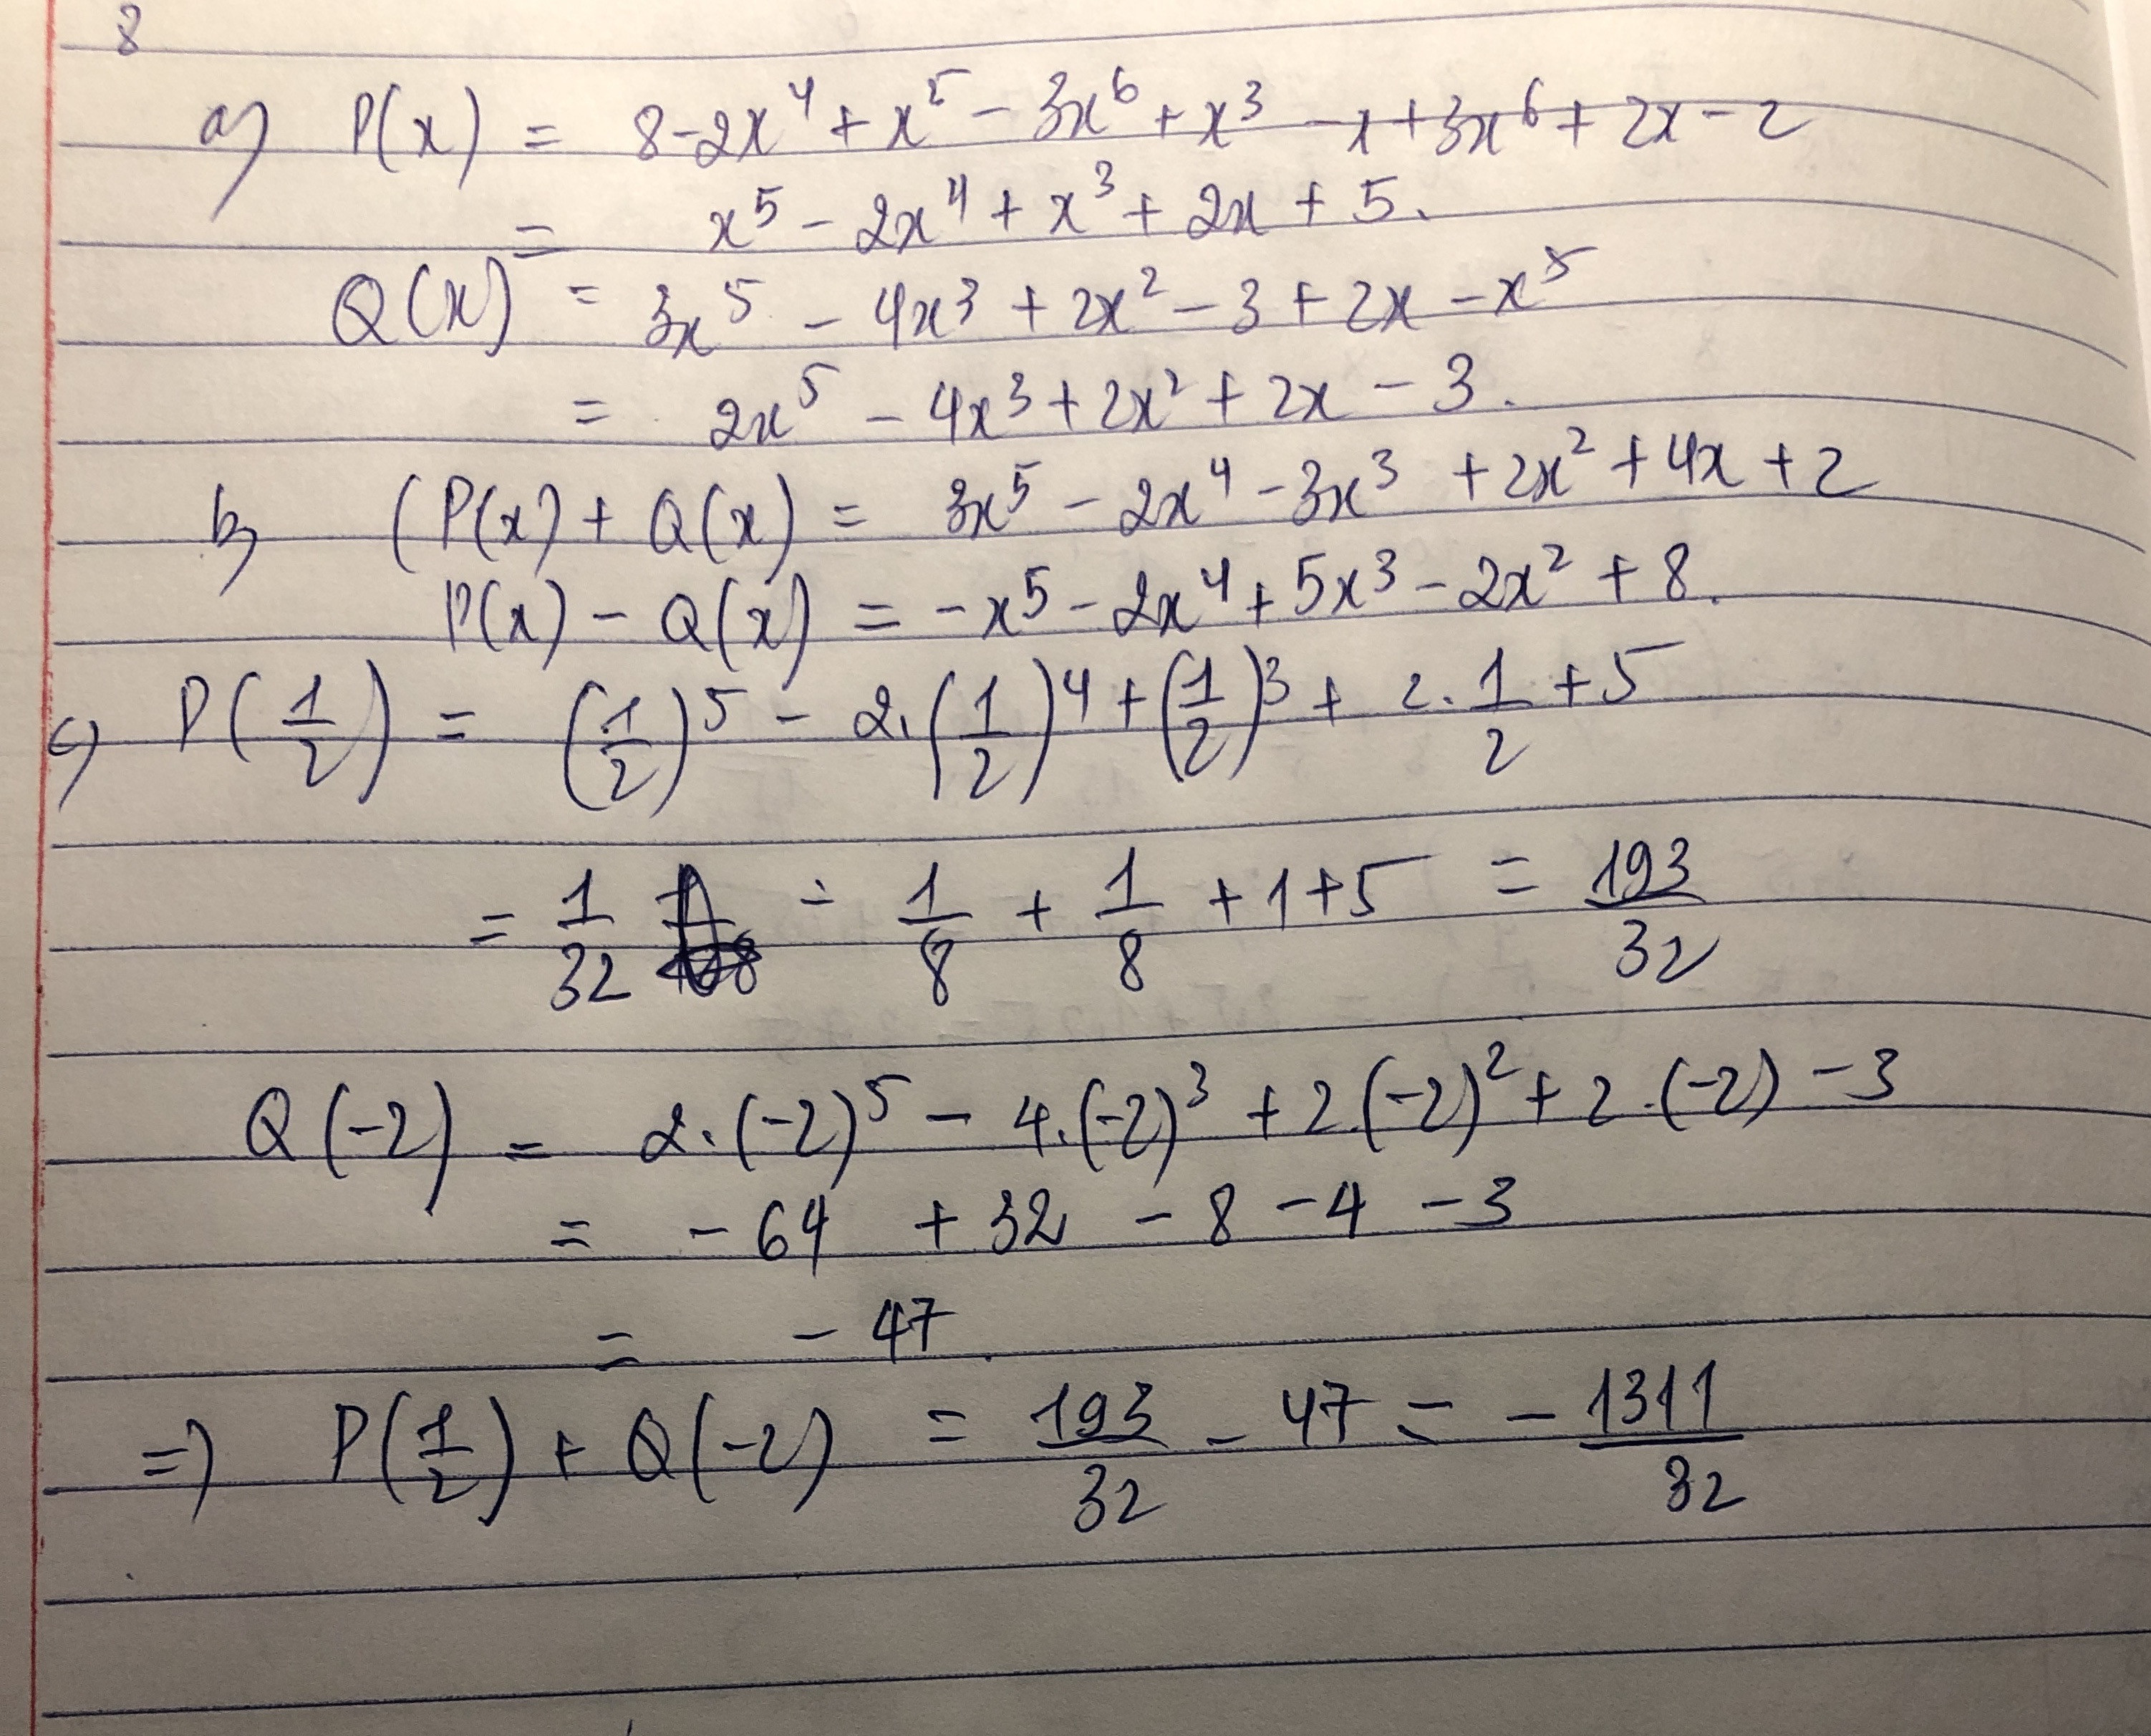 8
a) P(x) = 8 - 2x⁴ + x⁵ - 3x⁶ + x³ - x + 3x⁶ + 2x - 2
= x⁵ - 2x⁴ + x³ + 2x + 5.
Q(x) = 3x⁵ - 4x³ + 2x² - 3 + 2x - x⁵
= 2x⁵ - 4x³ + 2x² + 2x - 3.
b) (P(x) + Q(x) = 3x⁵ - 2x⁴ - 3x³ + 2x² + 4x + 2
P(x) - Q(x) = -x⁵ - 2x⁴ + 5x³ - 2x² + 8.
c) P(1/2) = (1/2)⁵ - 2.(1/2)⁴ + (1/2)³ + 2.1/2 + 5
= 1/32 - 1/8 + 1/8 + 1 + 5 = 193/32
Q(-2) = 2.(-2)⁵ - 4.(-2)³ + 2.(-2)² + 2.(-2) - 3
= -64 + 32 - 8 - 4 - 3
= -47.
=> P(1/2) + Q(-2) = 193/32 - 47 = -1311/32